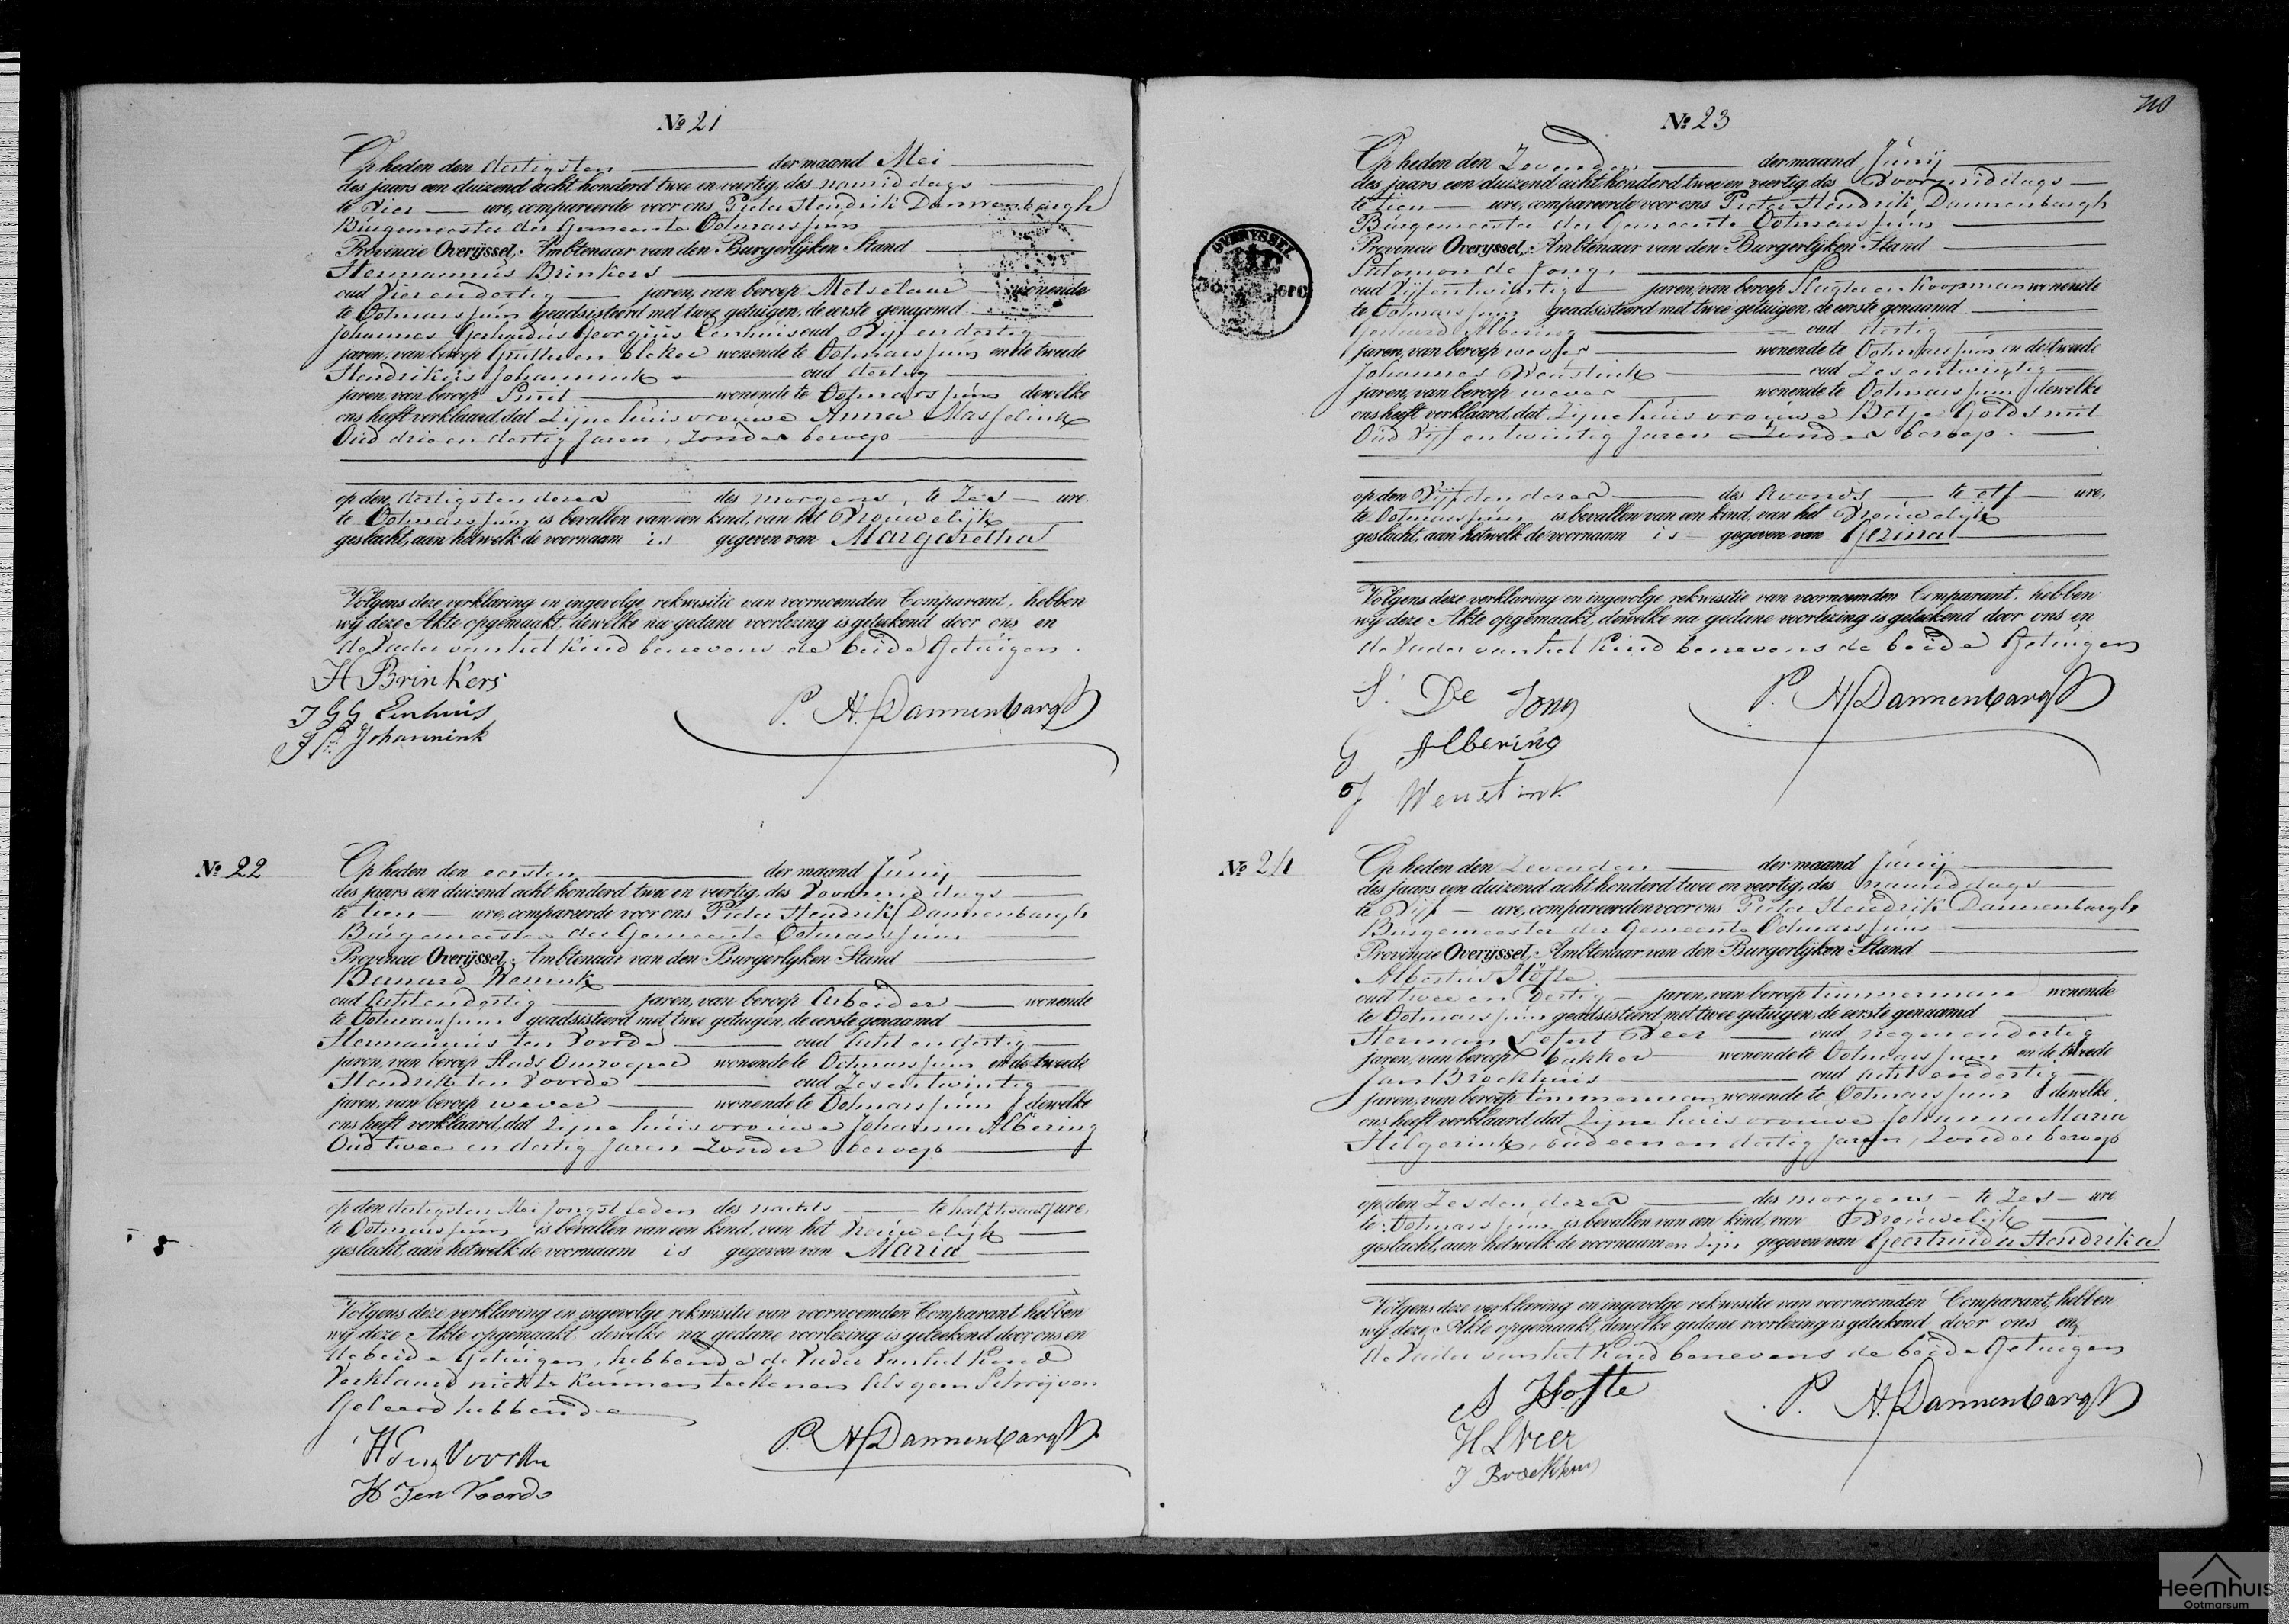 Nº 21
Op heden den dertigsten der maand Mei
des jaars een duizend acht honderd twee en veertig, des namiddags
te Vier ure, compareerde voor ons Pieter Hendrik Dannenbargh
Burgemeester der Gemeente Ootmarssum
Provincie Overijssel, Ambtenaar van den Burgerlijken Stand
Hermannus Brinkers
oud Vier en dertig jaren, van beroep Metselaar wonende
te Ootmarssum geadsisteerd met twee getuigen, de eerste genaamd
Johannes Gerhardus Georgius Eenhuis oud Vijf en dertig
jaren, van beroep wonende te Ootmarssum en de tweede
Hendrikus Johannink oud dertig
jaren, van beroep Smit wonende te Ootmarssum dewelke
ons heeft verklaard, dat Zijne huisvrouwe Anna Masselink
Oud drie en dertig Jaren, zonder beroep
op den dertigsten dezer des morgens, te Zes ure,
te Ootmarssum is bevallen van een kind, van het Vrouwelijk
geslacht, aan hetwelk de voornaam is gegeven van Margaretha
Volgens deze verklaring en ingevolge rekwisitie van voornoemden Comparant, hebben
wij deze Akte opgemaakt, dewelke na gedane voorlezing is geteekend door ons en
de Vader van het Kind benevens de beide Getuigen.
H Brinkers
J G G Eenhuis
P. H. Dannenbargh
Johannink
Nº 22
Op heden den eersten der maand Junij
des jaars een duizend acht honderd twee en veertig, des Voormiddags
te tien ure, compareerde voor ons Pieter Hendrik Dannenbargh
Burgemeester der Gemeente Ootmarssum
Provincie Overijssel, Ambtenaar van den Burgerlijken Stand
Bernard
oud Acht en dertig jaren, van beroep Arbeider wonende
te Ootmarssum geadsisteerd met twee getuigen, de eerste genaamd
Hermannus ten Voorde oud Acht en dertig
jaren, van beroep Stads Omroeper wonende te Ootmarssum en de tweede
Hendrik ten Voorde oud Zes en twintig
jaren, van beroep wever wonende te Ootmarssum dewelke
ons heeft verklaard, dat Zijne huisvrouwe Johanna Albering
Oud twee en dertig Jaren Zonder beroep
op den dertigsten Mei Jongstleden des nachts te half twaalf ure,
te Ootmarssum is bevallen van een kind, van het Vrouwelijk
geslacht, aan hetwelk de voornaam is gegeven van Maria
Volgens deze verklaring en ingevolge rekwisitie van voornoemden Comparant hebben
wij deze Akte opgemaakt, dewelke na gedane voorlezing is geteekend door ons en
de beide Getuigen, hebbende de Vader van het Kind
Verklaard niet te Kunnen teekenen Als geen Schrijven
Geleerd hebbende
H Ten Voorde
P. H. Dannenbargh
H Ten Voorde
Nº 23
Op heden den Zevenden der maand Junij
des jaars een duizend acht honderd twee en veertig des Voormiddags
te tien ure, compareerde voor ons Pieter Hendrik Dannenbargh
Burgemeester der Gemeente Ootmarssum
Provincie Overyssel, Ambtenaar van den Burgerlijken Stand
OVERYSSEL
Salomon de Jong
oud Vijf entwintig jaren, van beroep Slagter en Koopman wonende
te Ootmarssum geadsisteerd met twee getuigen, de eerste genaamd
Gerhard Albering oud dertig
jaren, van beroep wever wonende te Ootmarssum en de tweede
Johannes Wenstink oud Zes entwintig
jaren, van beroep wever wonende te Ootmarssum dewelke
ons heeft verklaard, dat Zijne huisvrouwe Betje Goldsmit
Oud Vijf entwintig Jaren Zonder beroep.
op den Vijfden dezer des Avonds te elf ure,
te Ootmarssum is bevallen van een kind, van het Vrouwelijk
geslacht, aan hetwelk de voornaam is gegeven van Gezina
Volgens deze verklaring en ingevolge rekwisitie van voornoemden Comparant, hebben
wij deze Akte opgemaakt, dewelke na gedane voorlezing is geteekend door ons en
de Vader van het Kind benevens de beide Getuigen
S. De Jong
P. H. Dannenbargh
G Albering
J Wenstink
Nº 24
Op heden den Zevenden der maand Junij
des jaars een duizend acht honderd twee en veertig, des namiddags
te Vijf ure, compareerden voor ons Pieter Hendrik Dannenbargh
Burgemeester der Gemeente Ootmarssum
Provincie Overijssel, Ambtenaar van den Burgerlijken Stand
Albertus Höfte
oud twee en dertig jaren, van beroep timmerman wonende
te Ootmarssum geadsisteerd met twee getuigen, de eerste genaamd
Herman Veer oud negen en dertig
jaren, van beroep bakker wonende te Ootmarssum en de tweede
Jan Broekhuis oud acht en dertig
jaren, van beroep timmerman wonende te Ootmarssum dewelke
ons heeft verklaard, dat Zijne huisvrouwe Johanna Maria
Hilgerink, oud een en dertig Jaren, Zonder beroep
op den Zesden dezer des morgens te Zes ure
te Ootmarssum is bevallen van een kind, van Vrouwelijk
geslacht, aan hetwelk de voornaamen Zijn gegeven van Geertruida Hendrika
Volgens deze verklaring en ingevolge rekwisitie van voornoemden Comparant, hebben
wij deze Akte opgemaakt, dewelke gedane voorlezing is geteekend door ons en
de Vader van het Kind benevens de beide Getuigen
A Hofte
P. H. Dannenbargh
H L Veer
J Broekhuis
Heemhuis
Ootmarsum